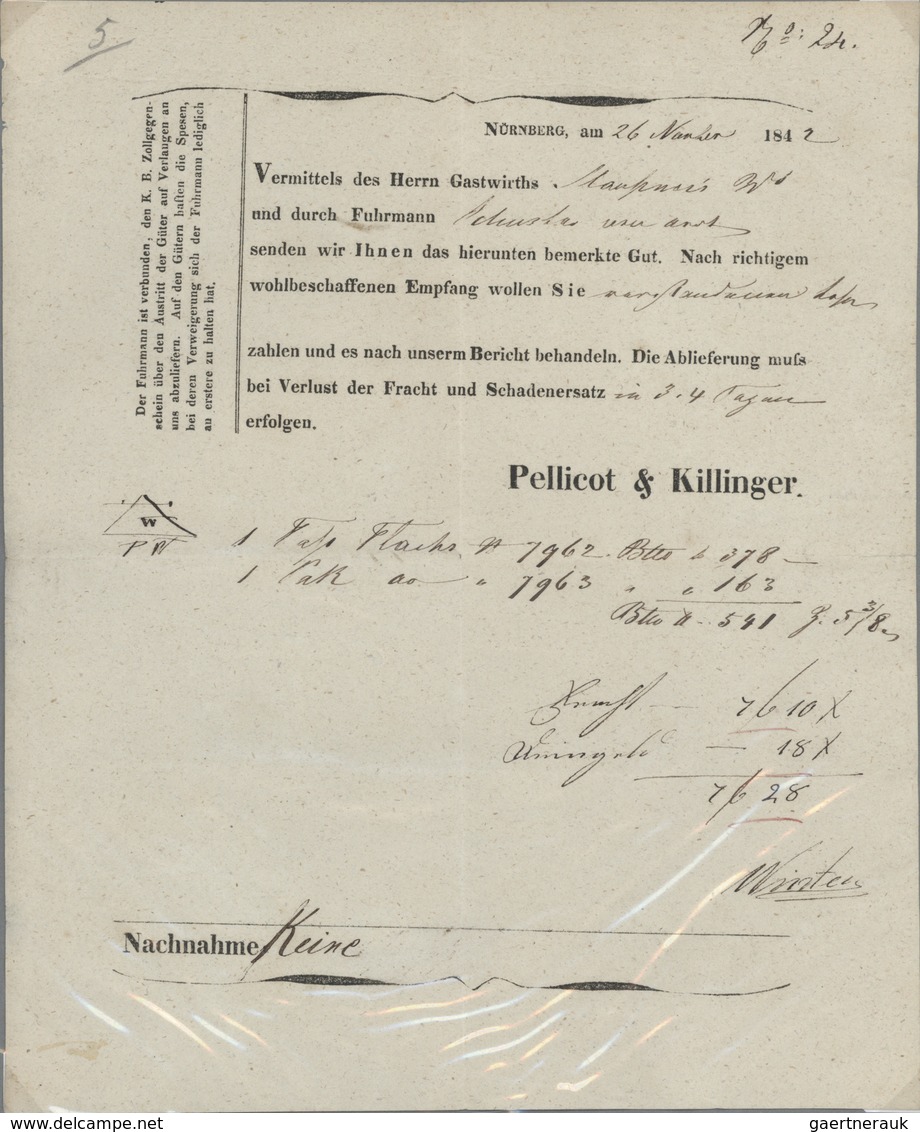 5
No: 24.
NÜRNBERG, am 26 November 1842
Der Fuhrmann ist verbunden, den K. B. Zollgegen-
schein über den Austritt der Güter auf Verlangen an
uns abzuliefern. Auf den Gütern haften die Spesen,
bei deren Verweigerung sich der Fuhrmann lediglich
an erstere zu halten hat.
Vermittels des Herrn Gastwirths
und durch Fuhrmann
senden wir Ihnen das hierunten bemerkte Gut. Nach richtigem
wohlbeschaffenen Empfang wollen Sie
zahlen und es nach unserm Bericht behandeln. Die Ablieferung muſs
bei Verlust der Fracht und Schadenersatz in 3-4 Tagen
erfolgen.
Pellicot & Killinger.
W
1 Faß Flachs 7962. Btto 378
1 Pak do " 7963 " " 163
Btto 541 5 3/8
Fracht 7f 10 x
18 x
7f 28
Nachnahme Keine
gaertnerauk